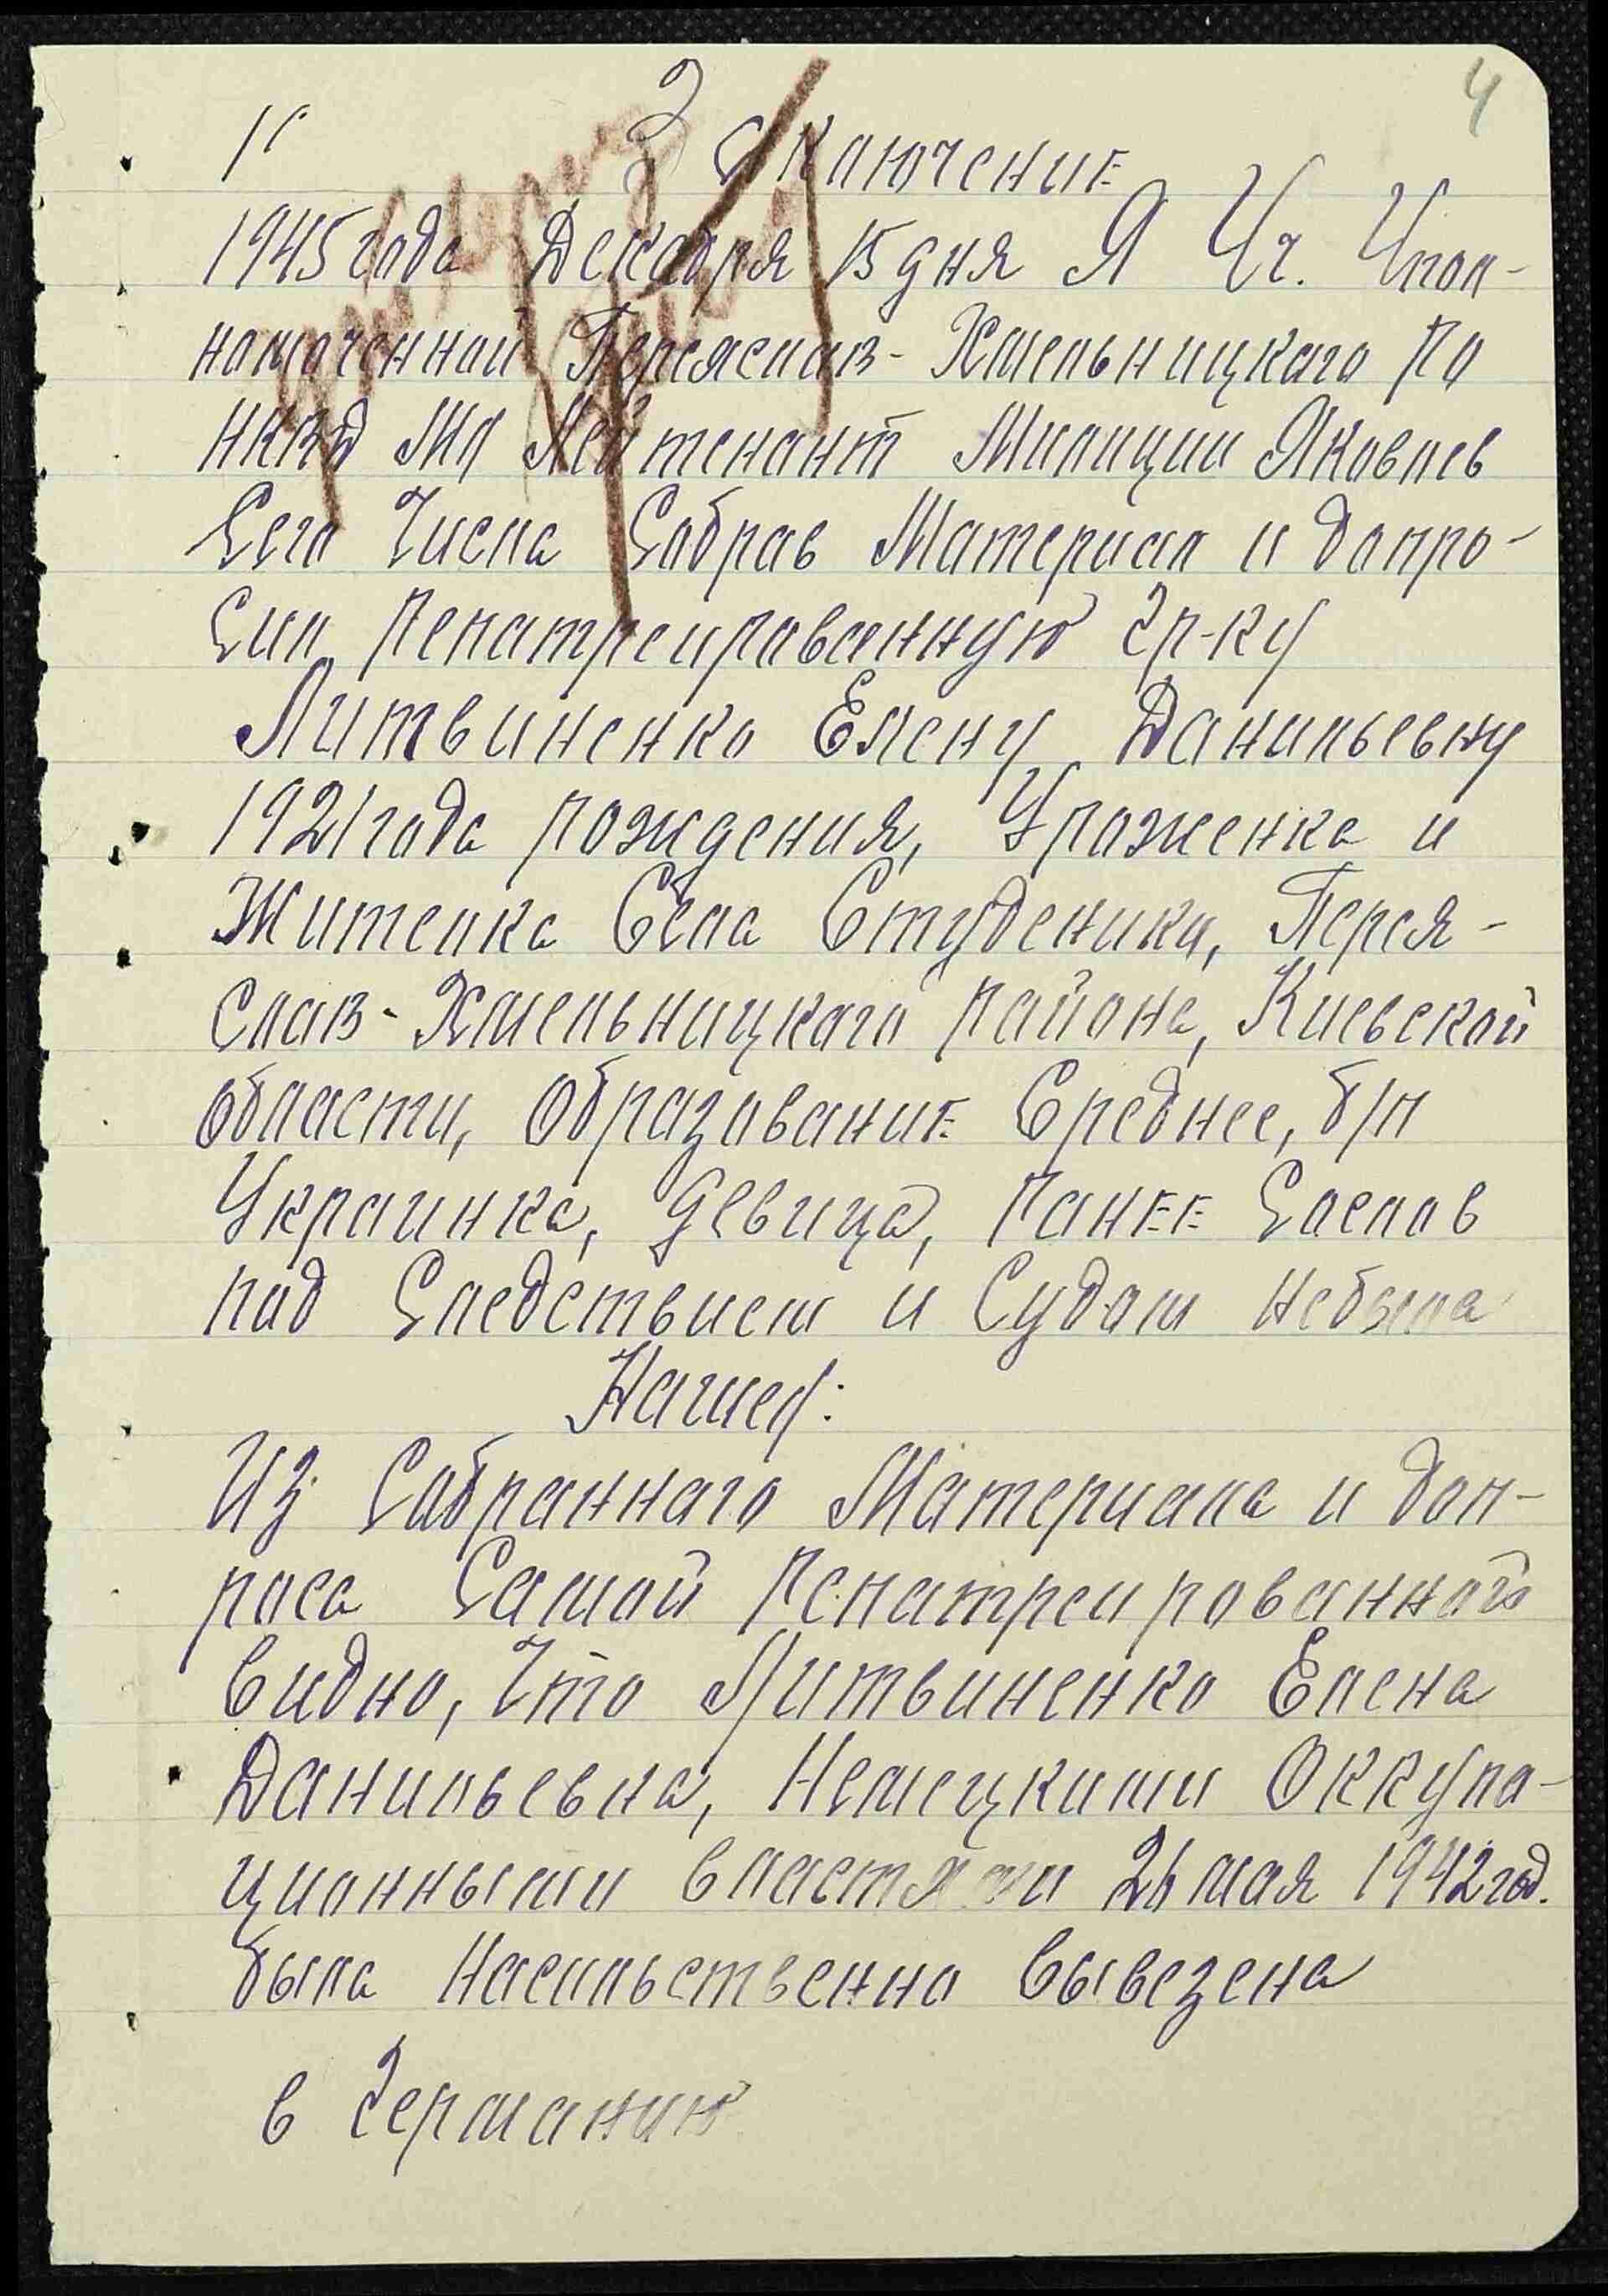 4
Заключение
1945 года Декабря 15 дня Я Уч. Упол-
номоченной Переяслав-Хмельницкаго Ро
НКВД Мл Лейтенант Милиции Яковлев
Сего Числа Собрав Материал и допро-
сил Репатреированную гр-ку
Литвиненко Елену Данильевну
1921 года рождения, Уроженка и
Жителка Села Студеники, Перея-
слав-Хмельницкаго района, Киевской
области, образование Среднее, б/п
Украинка, девица, Ранее Сослов
под Следствием и Судом Небыла
Нашел:
Из Собраннаго Материала и доп-
роса Самой Репатреированной
видно, Что Литвиненко Елена
Данильевна, Немецкими Оккупа-
ционными властями 26 мая 1942 год.
была Насильственно вывезена
в Германию